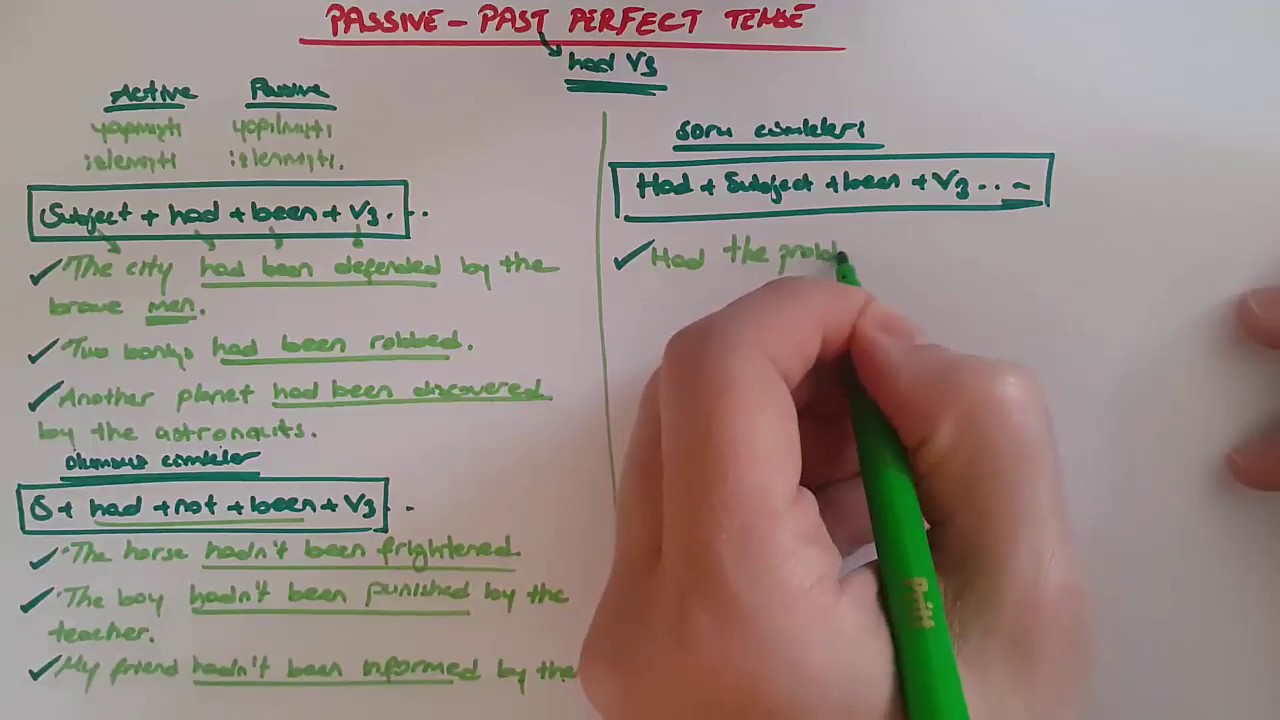 PASSIVE - PAST PERFECT TENSE
had V3
Active Passive
yapmıştı yapılmıştı
izlemişti izlenmişti.
Subject + had + been + V3 . . .
✓ The city had been defended by the
brave men.
✓ Two banks had been robbed.
✓ Another planet had been discovered
by the astronauts.
olumsuz cümleler
S + had + not + been + V3 . .
✓ The horse hadn't been frightened
✓ The boy hadn't been punished by the
teacher.
✓ My friend hadn't been informed by the
soru cümleleri
Had + Subject + been + V3 . . .
✓ Had the probl
Pritt